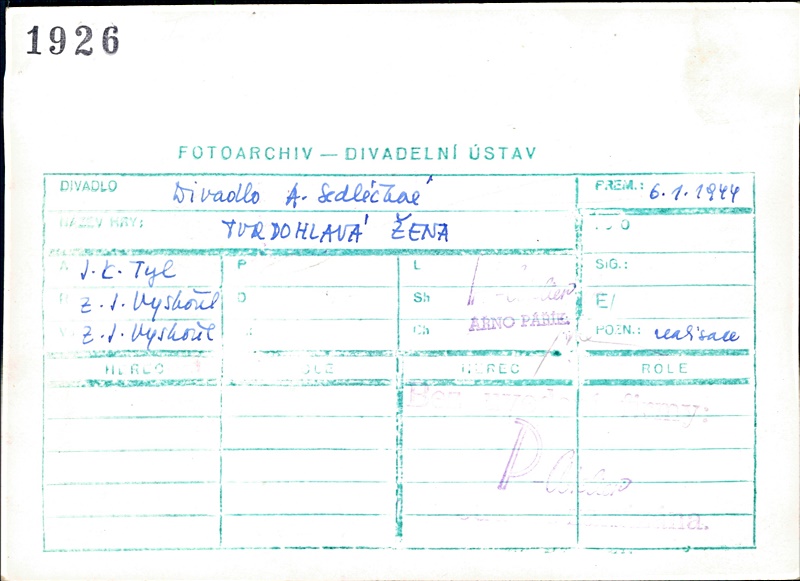 1926
FOTOARCHIV — DIVADELNÍ ÚSTAV
DIVADLO Divadlo A. Sedláčkové PREM.: 6.1.1944
NÁZEV HRY: TVRDOHLAVÁ ŽENA
A J. K. Tyl P L SIG.:
R Z. J. Vyskočil D Sh E/
V Z. J. Vyskočil Ch ARNO PAŘÍK POZN.: realisace
HEREC ROLE HEREC ROLE